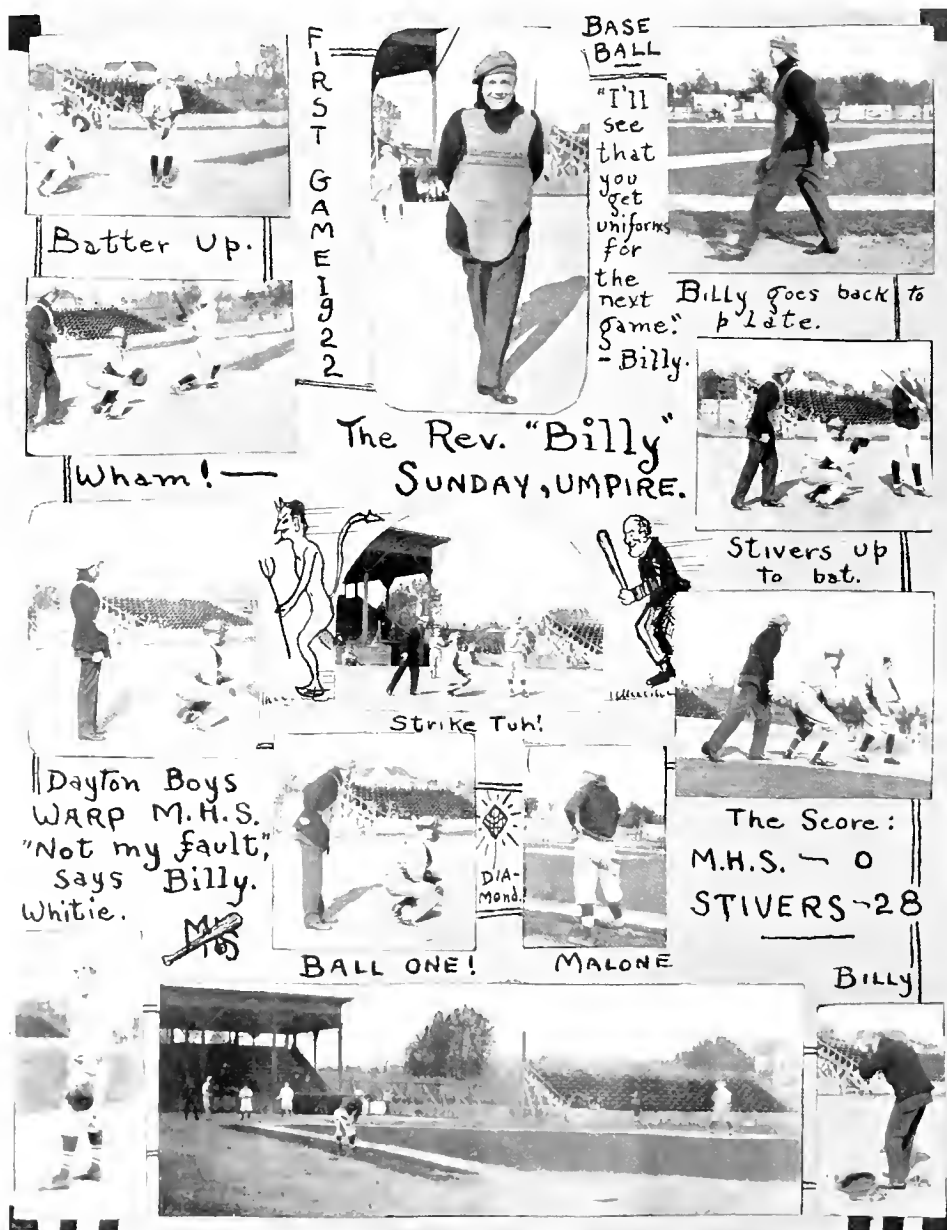 FIRST GAME 1922
BASE
BALL
"I'll
see
that
you
get
uniforms
for
the
next
game."
- Billy.
Batter Up.
Billy goes back to
plate.
The Rev. "Billy"
SUNDAY, UMPIRE.
Wham! —
Stivers up
to bat.
Strike Tuh!
Dayton Boys
WARP M.H.S.
"Not my fault",
says Billy.
Whitie.
MHS
DIA-
Mond.
The Score:
M.H.S. — 0
STIVERS - 28
BALL ONE!
MALONE
BILLY